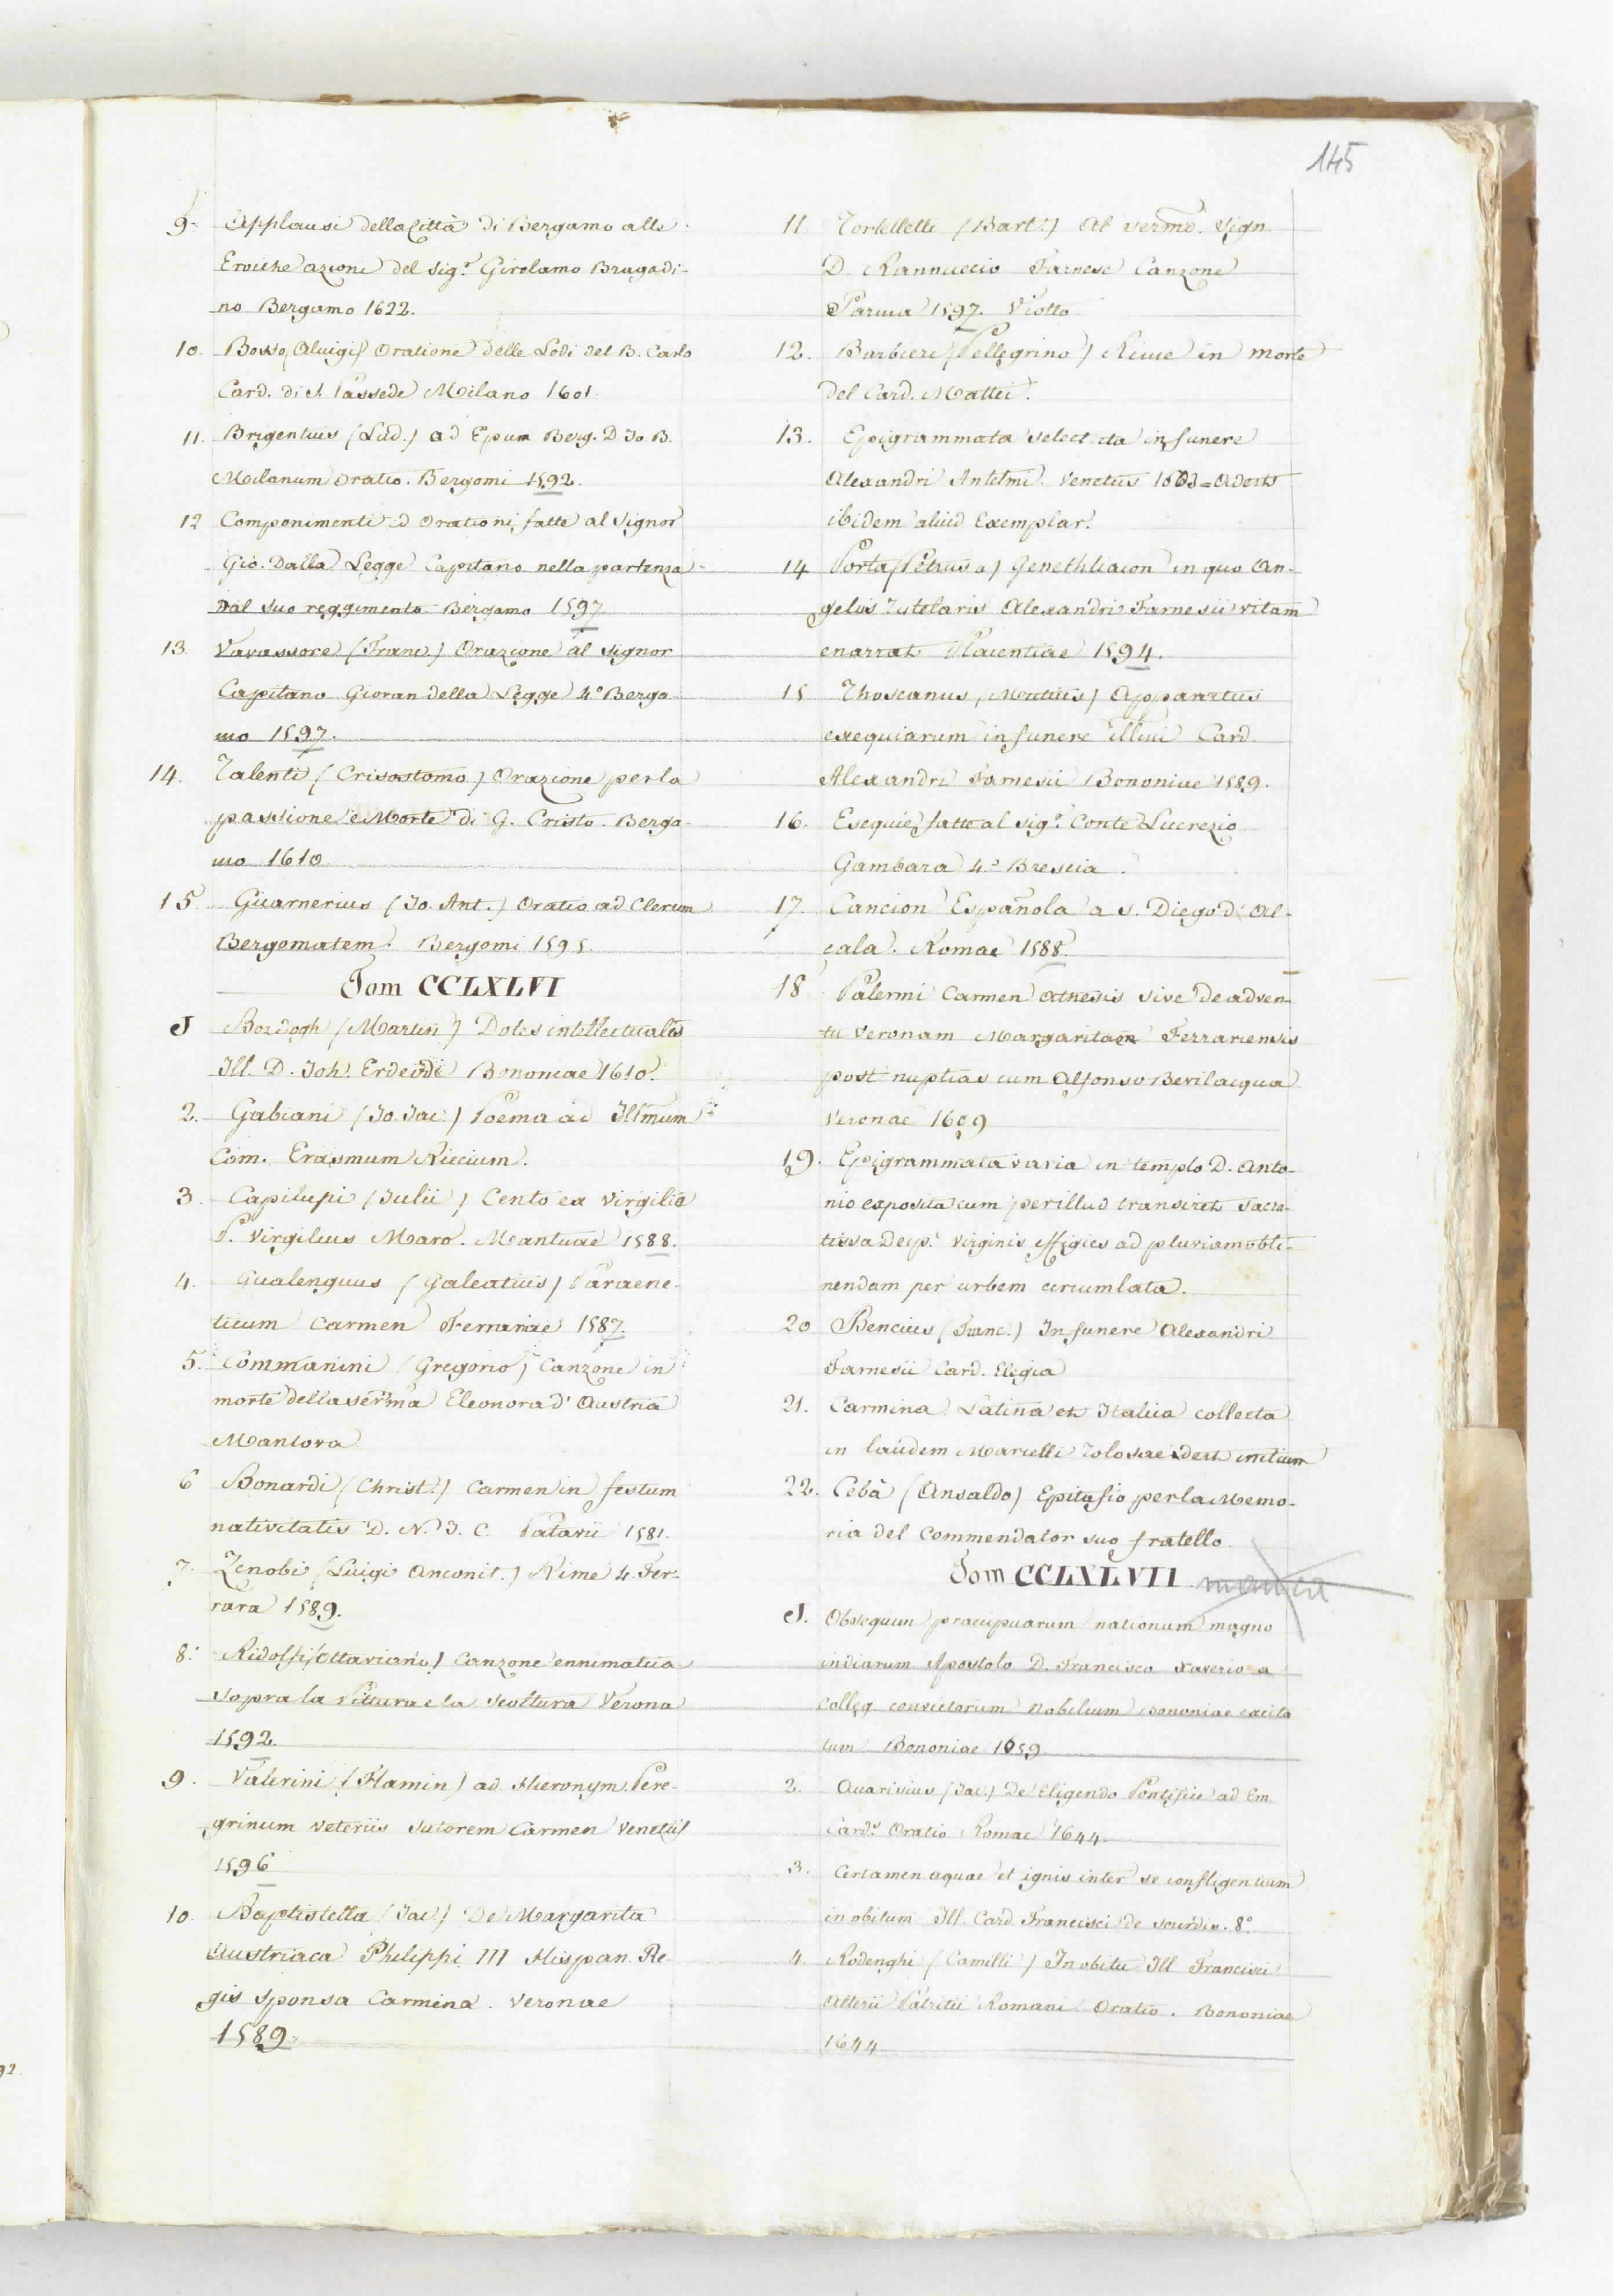 145
9. Applausi della Città di Bergamo alle
Eroiche azioni del Sig.r Girolamo Bragadi-
no Bergamo 1622.
10. Bosso (Aluigi) Oratione delle Lodi del B. Carlo
Card. di S. Passede Milano 1601
11. Brigentius (Lud.) ad Epum Berg. D. Jo. B.
Milanum Oratio. Bergomi 1592.
12 Componimenti ed Orationi fatte al Signor
Gio. Dalla Legge Capitano nella partenza
dal suo reggimento Bergamo 1597
13. Vavassore (Franc.) Orazione al Signor
Capitano Giovan della Legge 4° Berga
mo 1597.
14. Talenti (Crisostomo) Orazione per la
passione e Morte di G. Cristo. Berga-
mo 1610
15 Guarnerius (Jo. Ant.) Oratio ad Clerum
Bergomatem. Bergomi 1595.
Tom CCLXLVI
1 Bozdogh (Martin) Dotes intellectuales
Ill. D. Joh. Erdeodi Bononiae 1610.
2. Gabiani (Jo. Jac.) Poema ad Illmum
Com. Erasmum Riccium.
3. Capilupi (Julii) Cento ex Virgilio
P. Virgilius Maro. Mantuae 1588.
4. Gualenguus (Galeatius) Paraene-
ticum Carmen Ferrariae 1587.
5. Commanini (Gregorio) Canzone in
morte della serma Eleonora d'Austria
Mantova
6 Bonardi (Christ.) Carmen in festum
nativitatis D. N. J. C. Patavii 1581.
7. Zenobi (Luigi Anconit.) Rime 4. Fer-
rara 1589.
8. Ridolfi (Ottaviano) Canzone ennimatica
sopra la Pittura e la Scoltura Verona
1592
9. Valerini (Flamin) ad Hieronym. Pere-
grinum veteriis Sutorem Carmen Venetiis
1596
10 Baptistella (Jac) De Margarita
Austriaca Philippi III Hispan. Re-
gis Sponsa Carmina. Veronae
1589.
11 Tortelletti (Bart.) Al sermo. Sign.
D. Rannuccio Farnese Canzone
Parma 1597. Viotto
12. Barbieri (Pellegrino) Rime in morte
del Card. Mattei.
13. Epigrammata selecta in funere
Alexandri Antelmi. Venetiis 1603 = Adest
ibidem aliud Exemplar.
14 Porta (Petrus a) Genethliacon in quo An-
gelus Tutelaris Alexandri Farnesii vitam
enarrat Placentiae 1594.
15 Thoscanus (Mutius) Apparatus
exequiarum in funere illmi Card.
Alexandri Farnesii Bononiae 1589.
16. Esequie fatte al Sig.r Conte Lucrezio
Gambara 4.° Brescia.
17. Cancion Española a S. Diego d' Al-
cala. Romae 1588.
18 Palermi Carmen Athesis sive de adven-
tu Veronam Margaritae Ferrariensis
post nuptias cum Alfonso Bevilacqua
Veronae 1609
19. Epigrammata varia in templo D. Anto-
nio exposita cum per illud transiret Sacra-
tissa Deip. Virginis effigies ad pluviam obti-
nendam per urbem circumlata.
20 Bencius (Franc.) In funere Alexandri
Farnesii Card. Elegia
21. Carmina Latina et Italica collecta
in laudem Marcelli Tolosae deest initium
22. Cebà (Ansaldo) Epitafio per la Memo-
ria del Commendator suo fratello
Tom CCLXLVII manca
1. Obsequium praecipuarum nationum magno
indiarum Apostolo D. Francisco Xaverio a
Colleg. convictorum Nobilium Bononiae excita
tum Bononiae 1659
2. Avarisius (Jac.) De Eligendo Pontifice ad Em
Card.s Oratio Romae 1644
3. Certamen aquae et ignis inter se confligentium
in obitum Ill. Card. Francisci de Sourdis. 8°
4. Rodenghi (Camilli) In obitu Ill Francisci
Alterii Patritii Romani Oratio. Bononiae
1644
92.